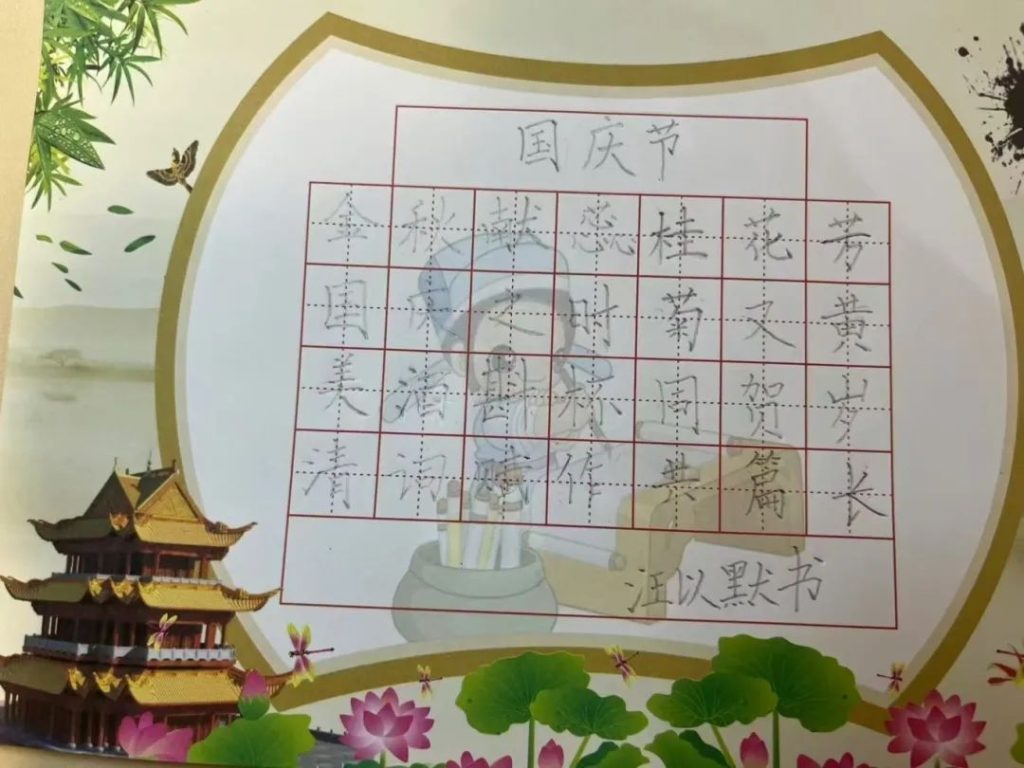 国庆节
金秋献蕊桂花芳
国庆之时菊又黄
美酒斟杯同贺岁
清词赋作共篇长
汪以默书